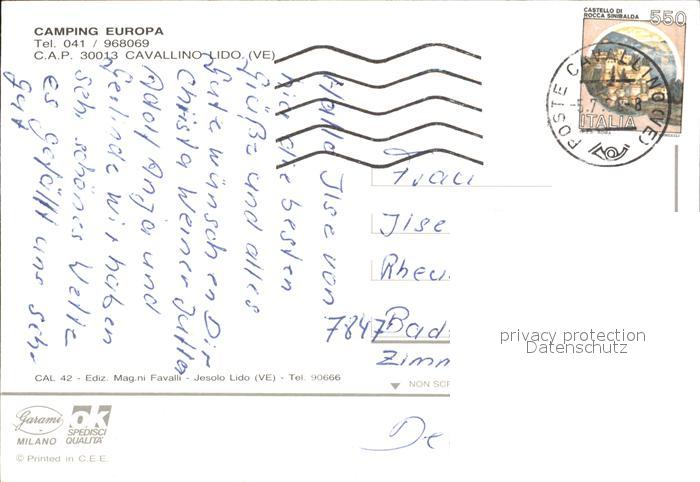 CAMPING EUROPA
Tel. 041 / 968069
C.A.P. 30013 CAVALLINO LIDO (VE)
CASTELLO DI
ROCCA SINIBALDA
550
ITALIA
POSTE CAVALLINO (VE)
Hallo Ilse von
hier die besten
Grüße und alles
Gute wünschen Dir
Christa Werner Jutta
Adolf Anja und
Gerlinde wir haben
sehr schönes Wetter
es gefällt uns sehr
gut
Frau
Ilse
7847 Bad
CAL 42 - Ediz. Mag.ni Favalli - Jesolo Lido (VE) - Tel. 90666
NON SCR
Garami
MILANO
OK
SPEDISCI
QUALITA'
© Printed in C.E.E.
privacy protection
Datenschutz